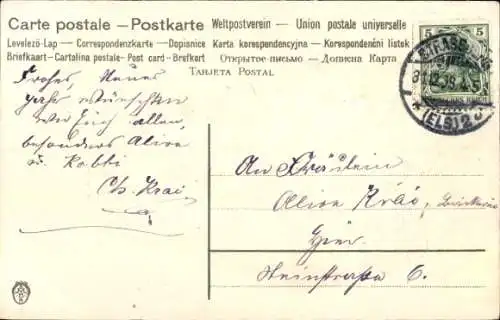 Carte postale – Postkarte Weltpostverein – Union postale universelle
Levelező-Lap – Correspondenzkarte – Dopisnice Karta korespondencyjna – Korespondenční listek
Briefkaart – Cartolina postale – Post card – Brefkort Открытое письмо – Дописна Карта
TARJETA POSTAL
5 5
STRASSBURG
(ELS) 2
Frohes, Neues
Jahr wünschen
wir Euch allen,
besonders Alice
u.
Ch.
An Fräulein
Alice
hier
Steinstrasse 6.